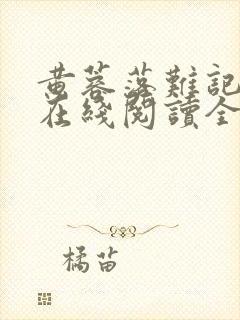 黄蓉落難記
在綫閱讀全
橘苗